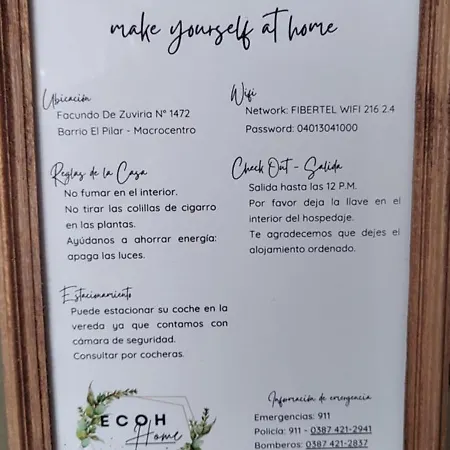 make yourself at home
Ubicación
Facundo De Zuviria N° 1472
Barrio El Pilar - Macrocentro
Wifi
Network: FIBERTEL WIFI 216 2.4
Password: 04013041000
Reglas de la Casa
No fumar en el interior.
No tirar las colillas de cigarro
en las plantas.
Ayúdanos a ahorrar energía:
apaga las luces.
Check Out - Salida
Salida hasta las 12 P.M.
Por favor deja la llave en el
interior del hospedaje.
Te agradecemos que dejes el
alojamiento ordenado.
Estacionamiento
Puede estacionar su coche en la
vereda ya que contamos con
cámara de seguridad.
Consultar por cocheras.
ECOH
Home
Información de emergencia
Emergencias: 911
Policía: 911 - 0387 421-2941
Bomberos: 0387 421-2837